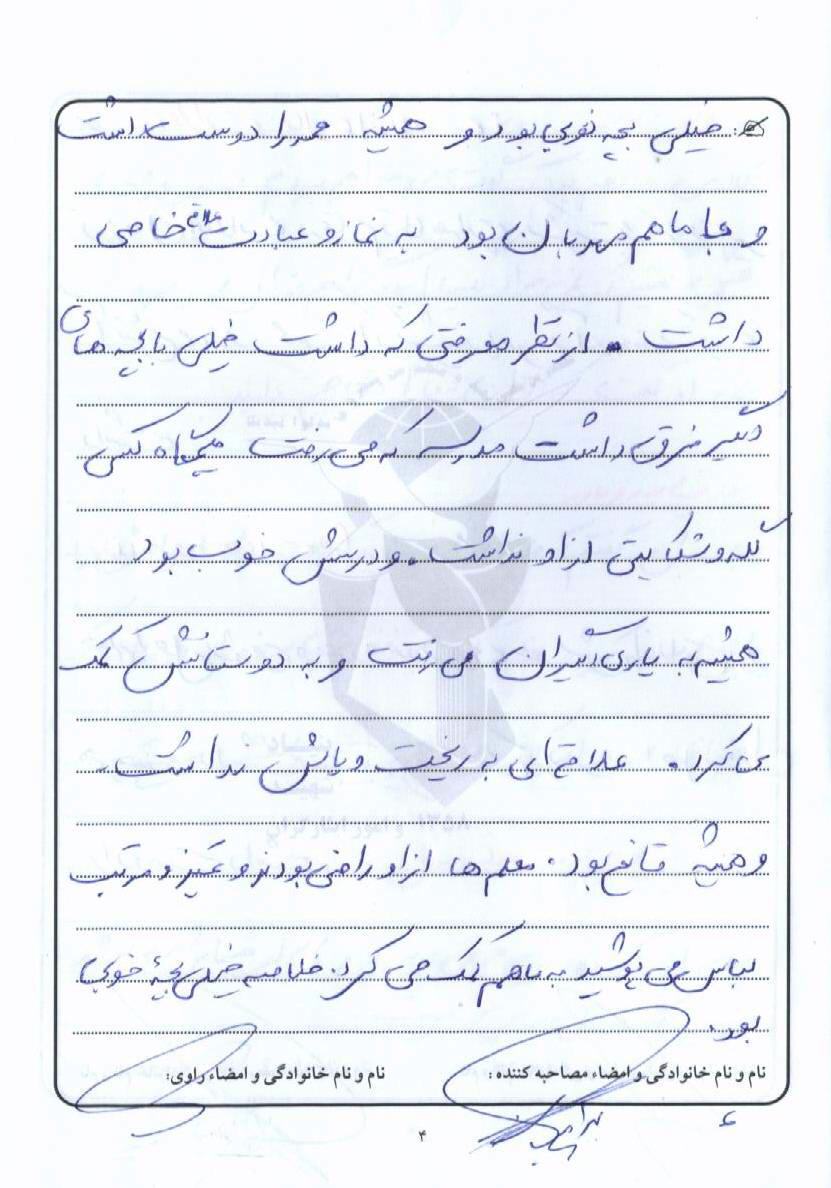 خیلی بچه خوبی بود و همیشه همه را دوست داشت
و با ما هم مهربان بود به نماز و عبادت علاقه خاصی
داشت. از نظر معرفتی که داشت خیلی با بچه های
دیگر فرق داشت مدرسه که می رفت هیچگاه کسی
گله و شکایتی از او نداشت. و درسش خوب بود
همیشه به یاری دیگران می رفت و به دوستانش کمک
می کرد. علاقه ای به ریخت و پاش نداشت.
و همیشه قانع بود. معلم ها از او راضی بودند و تمیز و مرتب
لباس می پوشید به ما هم کمک می کرد. خلاصه خیلی بچه خوبی
بود.
نام و نام خانوادگی و امضاء مصاحبه کننده :
نام و نام خانوادگی و امضاء راوی:
۴